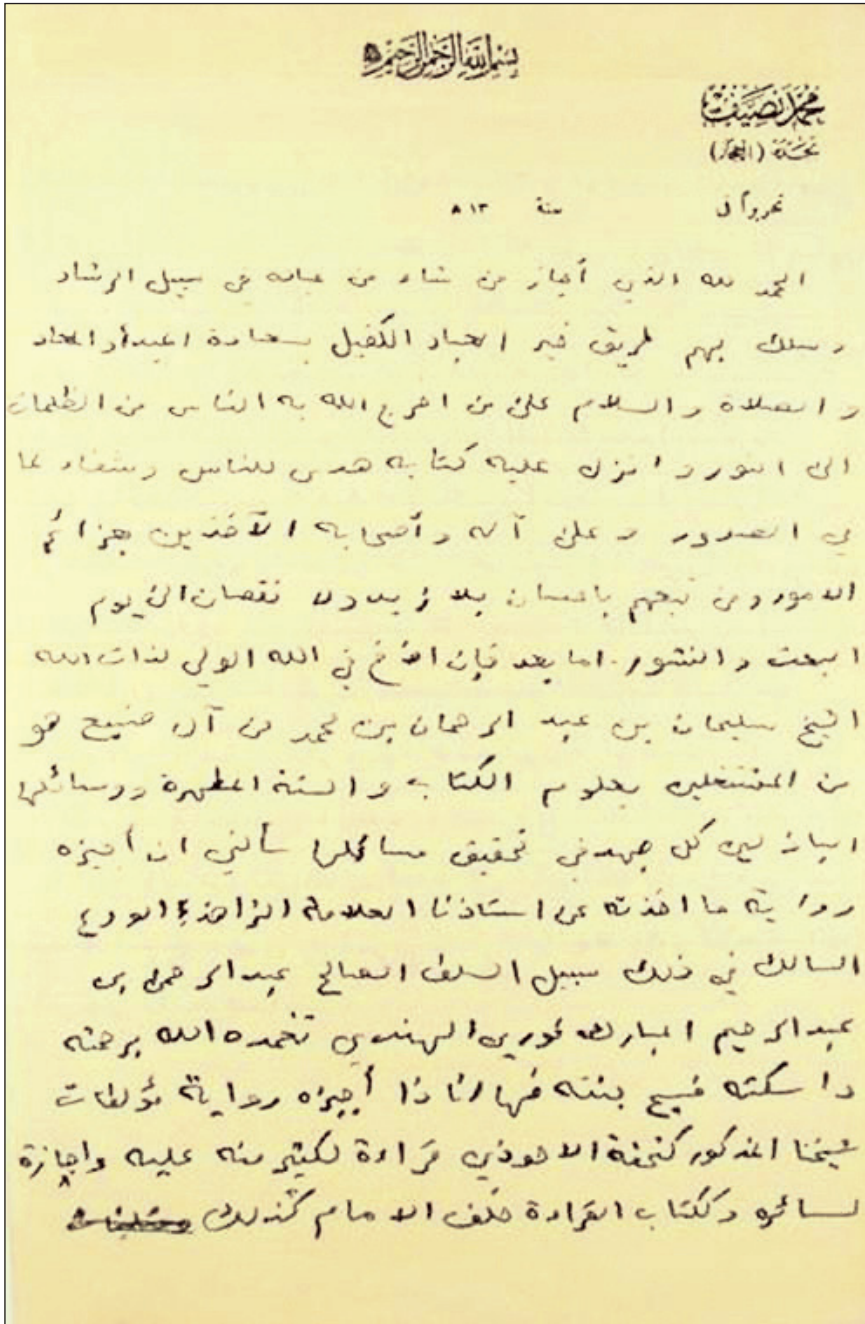 بسم الله الرحمن الرحيم
محمد نصيف
بجدة (الحجاز)
تحريراً في سنة ١٣ ٨
الحمد لله الذي أجاز من شاء من عباده في سبيل الرشاد
وسلك بهم طريق خير العباد الكفيل بسعادة المبدأ والمعاد
والصلاة والسلام على من اخرج الله به الناس من الظلمات
الى النور وانزل عليه كتابه هدى للناس وشفاء لما
في الصدور وعلى آله وأصحابه الآخذين بعزائم
الامور ومن تبعهم باحسان بلا زيد ولا نقصان الى يوم
البعث والنشور. اما بعد فإن الأخ في الله الولي لذات الله
الشيخ سليمان بن عبد الرحمان بن محمد من آل صنيع هو
من المشتغلين بعلوم الكتاب والسنة المطهرة ووسائلها
الباذلين كل جهد في تحقيق مسائلها سألني ان أجيزه
رواية ما اخذته عن استاذنا العلامة الزاهد الورع
السالك في ذلك سبيل السلف الصالح عبد الرحمن بن
عبد الرحيم المباركفوري الهندي تغمده الله برحمته
واسكنه فسيح جنته فها انا ذا أجيزه رواية مؤلفات
شيخنا المذكور كتحفة الاحوذي قراءة لكثير منه عليه واجازة
لسائره وككتاب القراءة خلف الامام كذلك